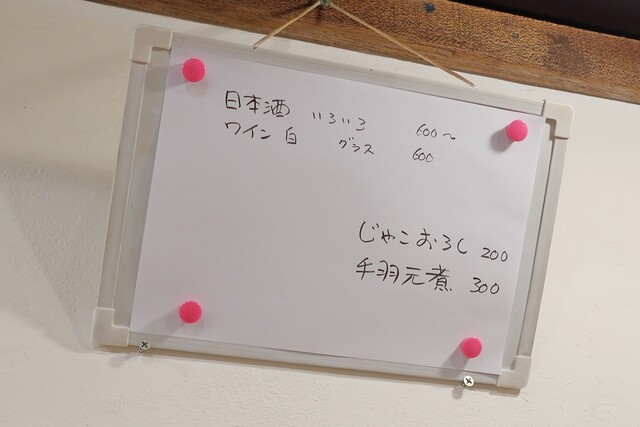 日本酒 いろいろ 600〜
ワイン 白 グラス 600
じゃこおろし 200
手羽元煮 300